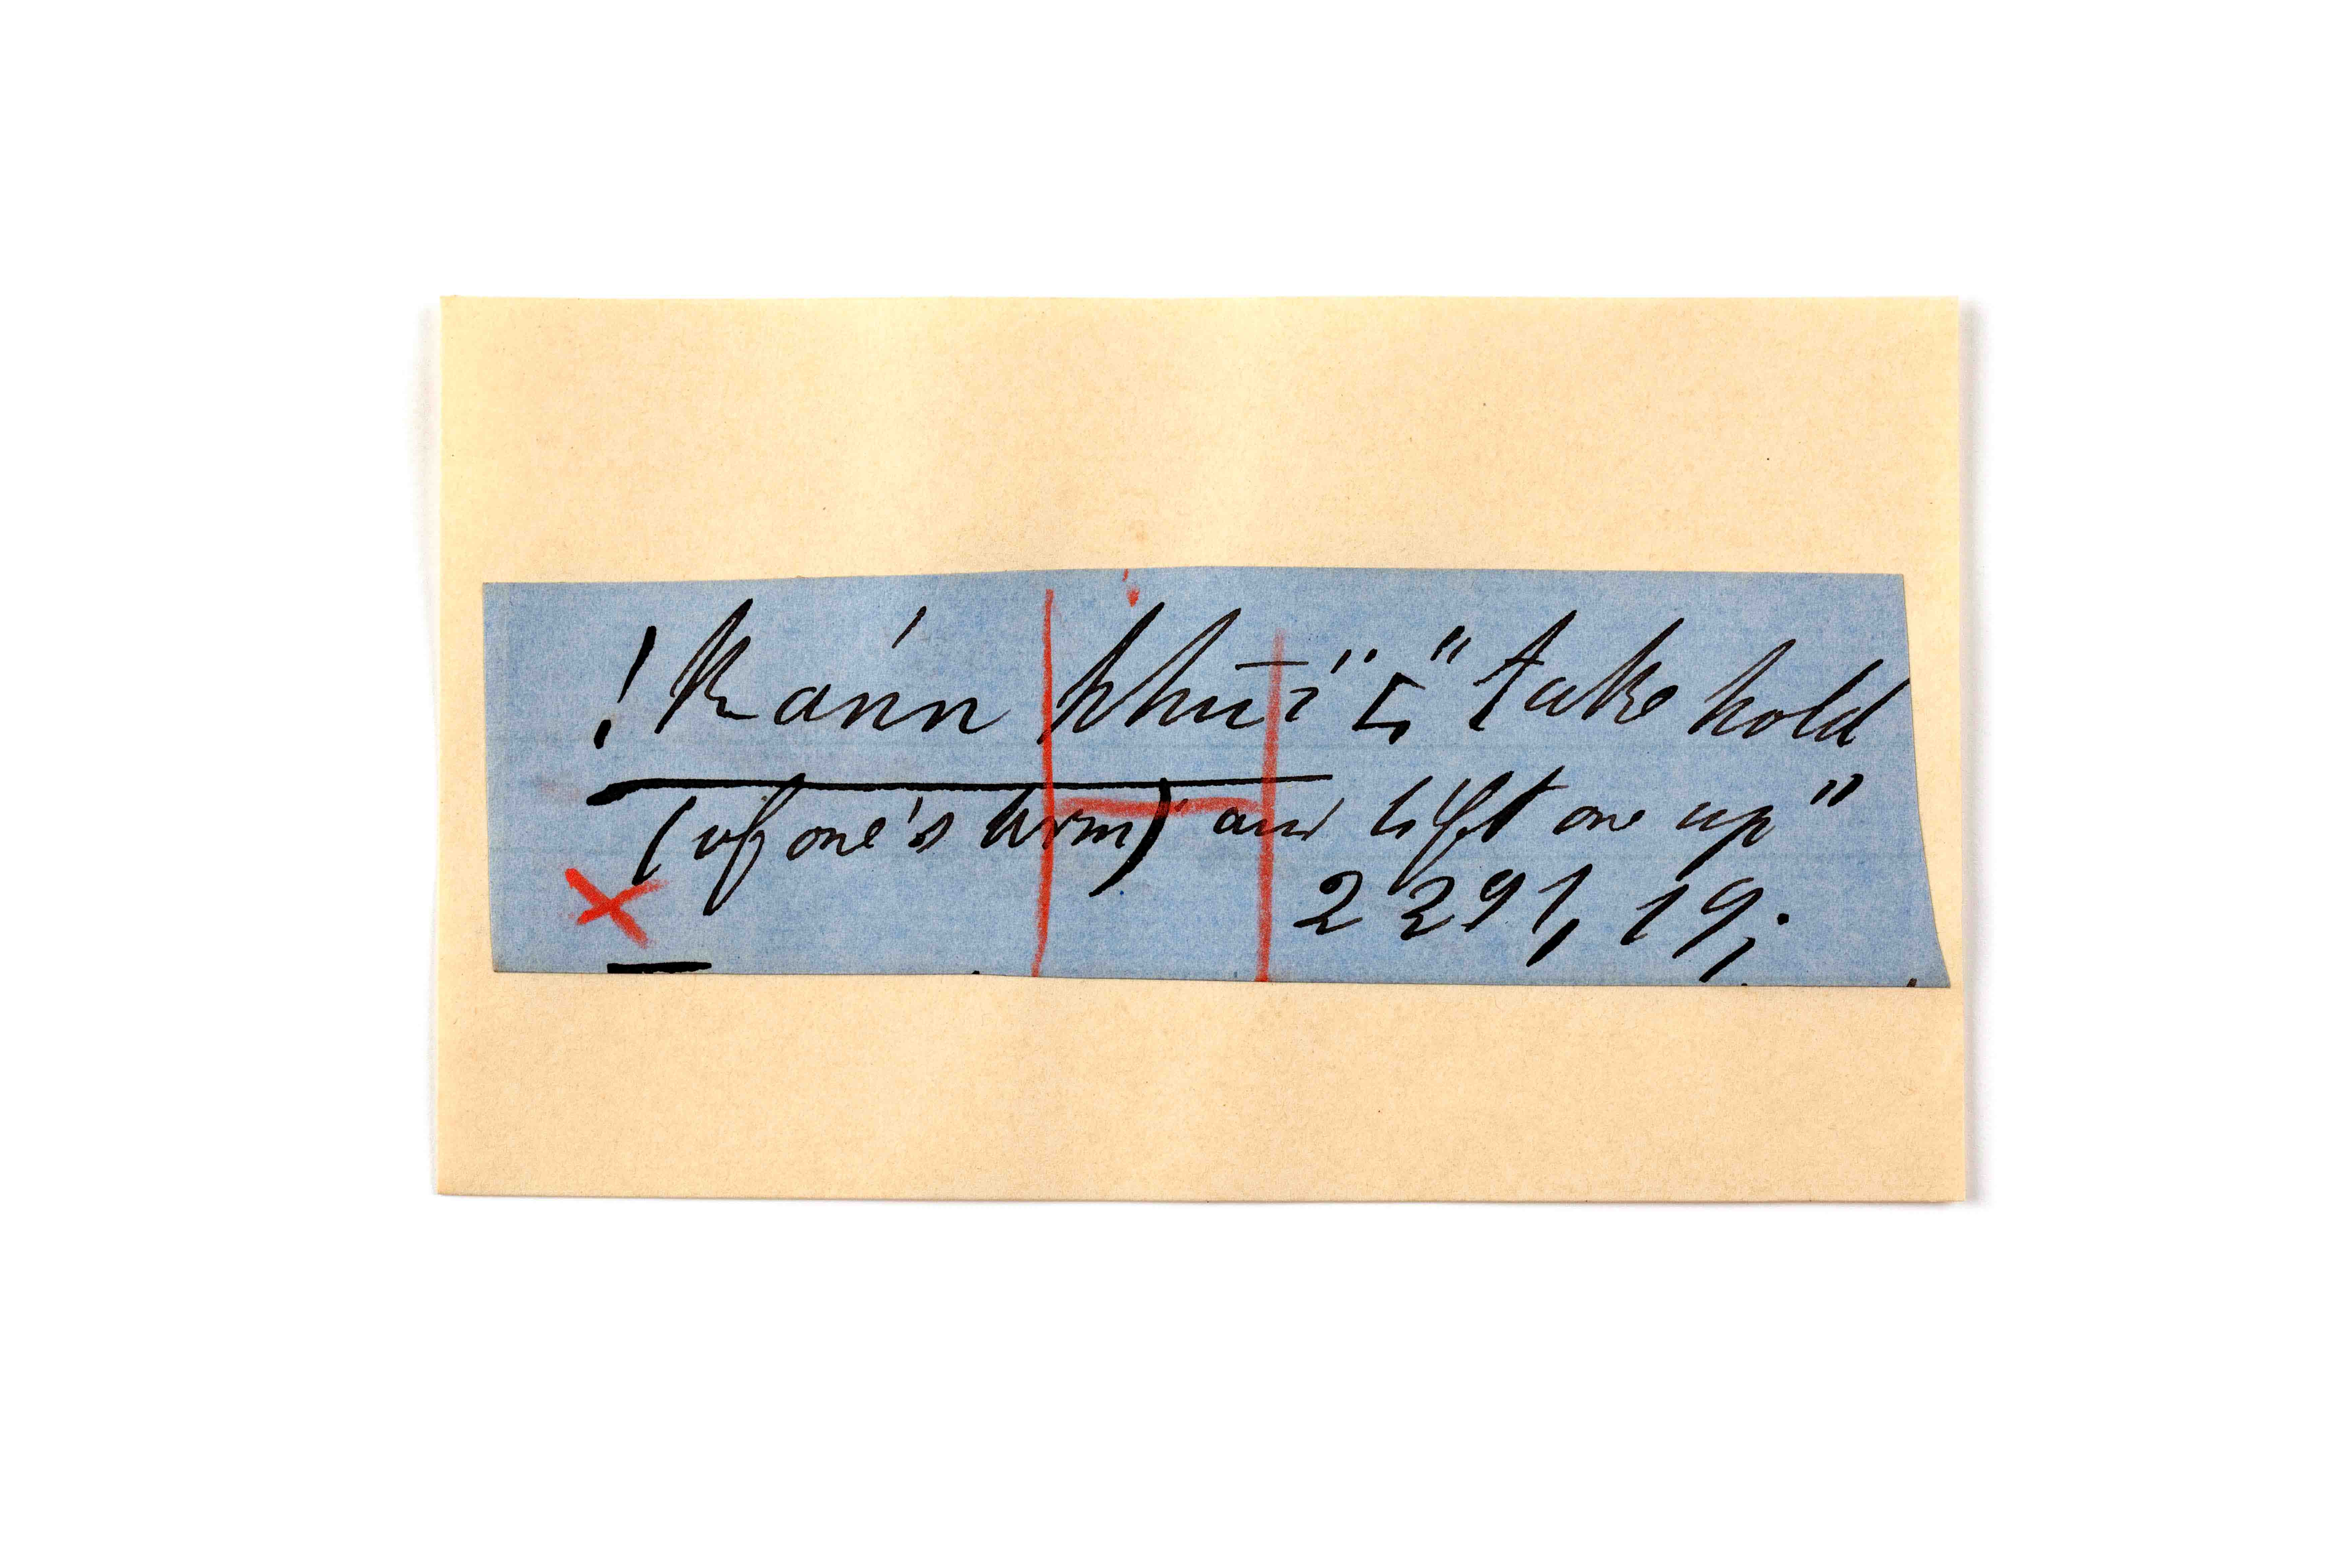 !kánn khūï [" take hold
(of one's arm) and lift one up"
2291, 19;